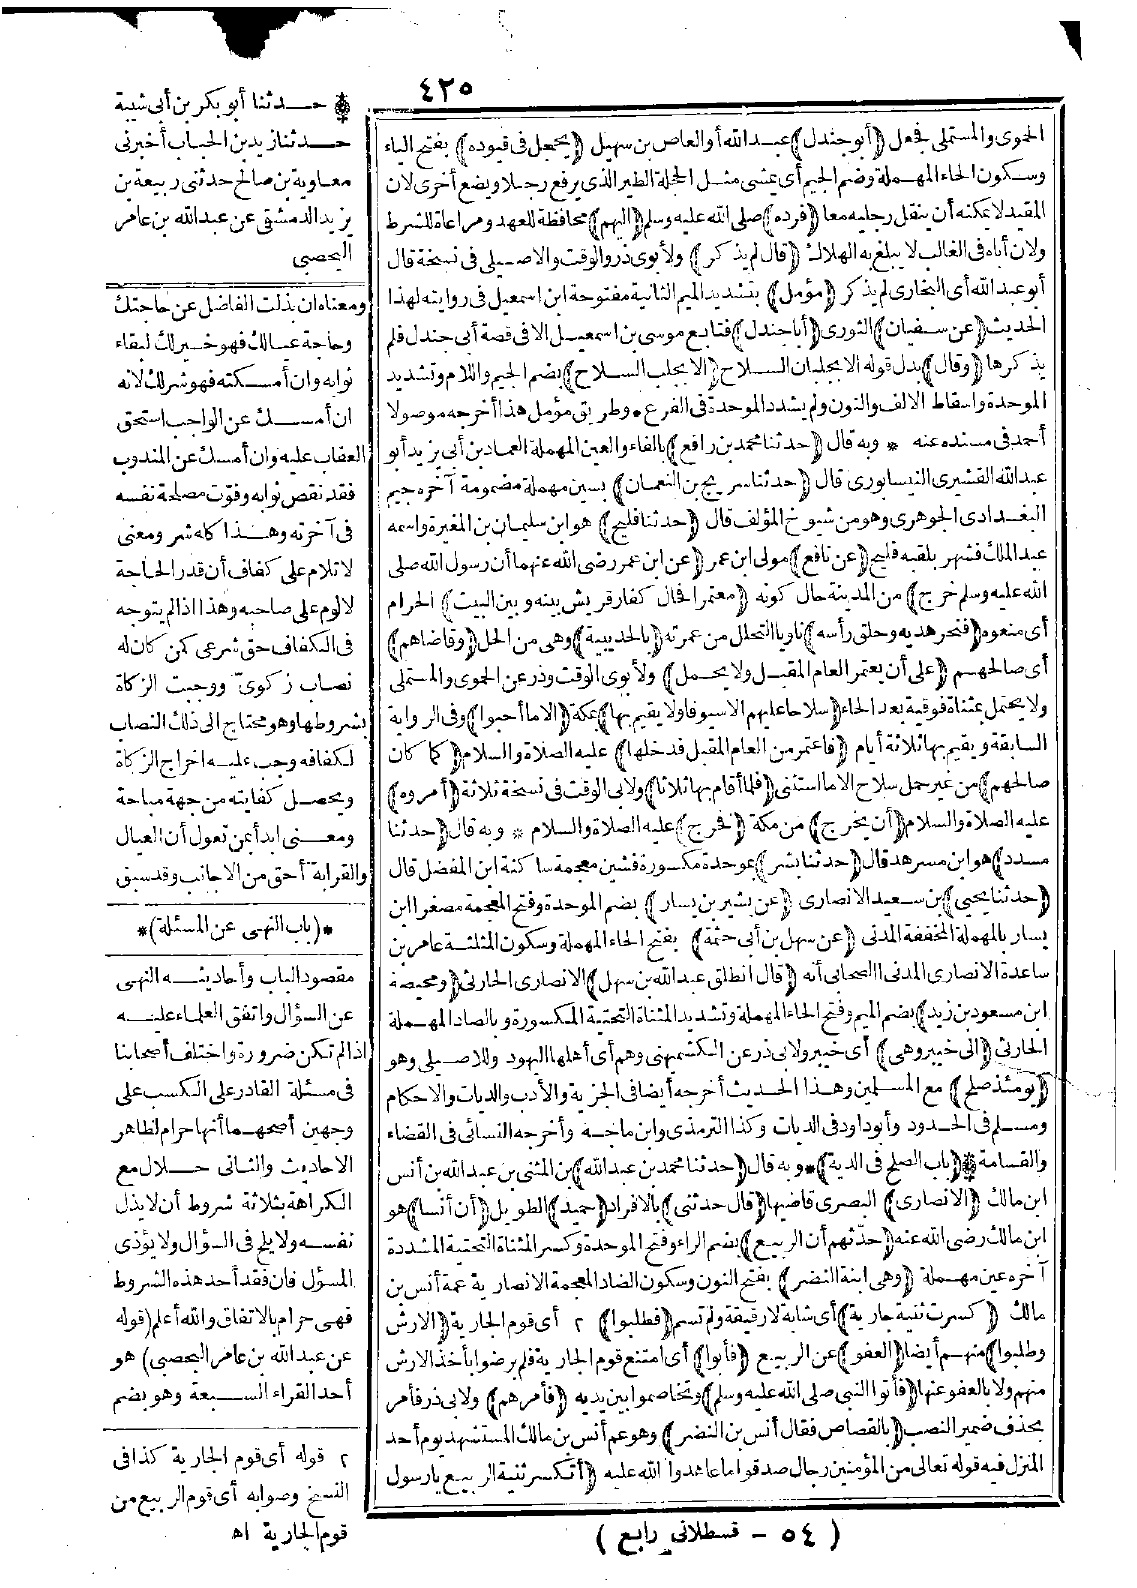 ٤٢٥
الحموى والمستملى فجعل (أبو جندل) عبد الله أو العاص بن سهيل (يحجل فى قيوده) بفتح الياء
وسكون الحاء المهملة وضم الجيم أى يمشى مثل الحجلة الطير الذى يرفع رجلا ويضع أخرى لان
المقيد لا يمكنه أن ينقل رجليه معا (فرده) صلى الله عليه وسلم (اليهم) محافظة للعهد ومراعاة للشرط
ولان أباه فى الغالب لا يبلغ به الهلاك (قال لم يذكر) ولأبوى ذر والوقت والاصيلى فى نسخة قال
أبو عبد الله أى البخارى لم يذكر (مؤمل) بتشديد الميم الثانية مفتوحة ابن اسمعيل فى روايته لهذا
الحديث (عن سفيان) الثورى (أبا جندل) فتابع موسى بن اسمعيل الا فى قصة أبى جندل فلم
يذكرها (وقال) بدل قوله الا بجلبان السلاح (الا بجلب السلاح) بضم الجيم واللام وتشديد
الموحدة واسقاط الالف والنون ولم يشدد الموحدة فى الفرع * وطريق مؤمل هذا أخرجه موصولا
أحمد فى مسنده عنه * وبه قال (حدثنا محمد بن رافع) بالفاء والعين المهملة العماد بن أبى يزيد أبو
عبد الله القشيرى النيسابورى قال (حدثنا سريج بن النعمان) بسين مهملة مضمومة آخره جيم
البغدادى الجوهرى وهو من شيوخ المؤلف قال (حدثنا فليح) هو ابن سليمان بن المغيرة واسمه
عبد الملك فشهر بلقبه فليح (عن نافع) مولى ابن عمر (عن ابن عمر رضى الله عنهما أن رسول الله صلى
الله عليه وسلم خرج) من المدينة حال كونه (معتمرا فحال كفار قريش بينه وبين البيت) الحرام
أى منعوه (فنحر هديه وحلق رأسه) ناويا التحلل من عمرته (بالحديبية) وهى من الحل (وقاضاهم)
أى صالحهم (على أن يعتمر العام المقبل ولا يحمل) ولأبوى الوقت وذر عن الحموى والمستملى
ولا يحتمل بمثناة فوقية بعد الحاء (سلاحا عليهم الا سيوفا ولا يقيم بها) بمكة (الا ما أحبوا) وفى الرواية
السابقة ويقيم بها ثلاثة أيام (فاعتمر من العام المقبل فدخلها) عليه الصلاة والسلام (كما كان
صالحهم) من غير حمل سلاح الا ما استثنى (فلما أقام بها ثلاثا) ولابى الوقت فى نسخة ثلاثة (أمروه)
عليه الصلاة والسلام (أن يخرج) من مكة (فخرج) عليه الصلاة والسلام * وبه قال (حدثنا
مسدد) هو ابن مسرهد قال (حدثنا بشر) بموحدة مكسورة فشين معجمة ساكنة ابن المفضل قال
(حدثنا يحيى) بن سعيد الانصارى (عن بشير بن يسار) بضم الموحدة وفتح المعجمة مصغرا ابن
يسار بالمهملة المخففة المدنى (عن سهل بن أبى حثمة) بفتح الحاء المهملة وسكون المثلثة عامر بن
ساعدة الانصارى المدنى الصحابى أنه (قال انطلق عبد الله بن سهل) الانصارى الحارثى (ومحيصة
ابن مسعود بن زيد) بضم الميم وفتح الحاء المهملة وتشديد المثناة التحتية المكسورة وبالصاد المهملة
الحارثى (الى خيبر وهى) أى خيبر ولابى ذر عن الكشميهنى وهم أى أهلها اليهود وللاصيلى وهو
(يومئذ صلح) مع المسلمين وهذا الحديث أخرجه أيضا فى الجزية والأدب والديات والاحكام
ومسلم فى الحدود وأبو داود فى الديات وكذا الترمذى وابن ماجه وأخرجه النسائى فى القضاء
والقسامة * (باب الصلح فى الدية) * وبه قال (حدثنا محمد بن عبد الله) بن المثنى بن عبد الله بن أنس
ابن مالك (الانصارى) البصرى قاضيها (قال حدثنى) بالافراد (حميد) الطويل (أن أنسا) هو
ابن مالك رضى الله عنه (حدّثهم أن الربيع) بضم الراء وفتح الموحدة وكسر المثناة التحتية المشددة
آخره عين مهملة (وهى ابنة النضر) بفتح النون وسكون الضاد المعجمة الانصارية عمة أنس بن
مالك (كسرت ثنية جارية) أى شابة لا رقيقة ولم تسم (فطلبوا) ٢ أى قوم الجارية (الارش
وطلبوا) منهم أيضا (العفو) عن الربيع (فأبوا) أى امتنع قوم الجارية فلم يرضوا بأخذ الارش
منهم ولا بالعفو عنها (فأتوا النبى صلى الله عليه وسلم) وتخاصموا بين يديه (فأمرهم) ولابى ذر فأمر
بحذف ضمير النصب (بالقصاص فقال أنس بن النضر) وهو عم أنس بن مالك المستشهد يوم أحد
المنزل فيه قوله تعالى من المؤمنين رجال صدقوا ما عاهدوا الله عليه (أتكسر ثنية الربيع يا رسول
* حدثنا أبو بكر بن أبى شيبة
حدثنا زيد بن الحباب أخبرنى
معاوية بن صالح حدثنى ربيعة بن
يزيد الدمشقى عن عبد الله بن عامر
اليحصبى
ومعناه ان بذلت الفاضل عن حاجتك
وحاجة عيالك فهو خير لك لبقاء
ثوابه وان أمسكته فهو شر لك لانه
ان أمسك عن الواجب استحق
العقاب عليه وان أمسك عن المندوب
فقد نقص ثوابه وفوت مصلحة نفسه
فى آخرته وهذا كله شر ومعنى
لا تلام على كفاف أن قدر الحاجة
لا لوم على صاحبه وهذا اذا لم يتوجه
فى الكفاف حق شرعى كمن كان له
نصاب زكوىّ ووجبت الزكاة
بشروطها وهو محتاج الى ذلك النصاب
لكفافه وجب عليه اخراج الزكاة
ويحصل كفايته من جهة مباحة
ومعنى ابدأ بمن تعول أن العيال
والقرابة أحق من الاجانب وقد سبق
*(باب النهى عن المسئلة)*
مقصود الباب وأحاديثه النهى
عن السؤال واتفق العلماء عليه
اذا لم تكن ضرورة واختلف أصحابنا
فى مسئلة القادر على الكسب على
وجهين أصحهما أنها حرام لظاهر
الاحاديث والثانى حلال مع
الكراهة بثلاثة شروط أن لا يذل
نفسه ولا يلح فى السؤال ولا يؤذى
المسؤل فان فقد أحد هذه الشروط
فهى حرام بالاتفاق والله أعلم (قوله
عن عبد الله بن عامر اليحصبى) هو
أحد القراء السبعة وهو بضم
٢ قوله أى قوم الجارية كذا فى
النسخ وصوابه أى قوم الربيع من
قوم الجارية اه
(٥٤ - قسطلانى رابع)